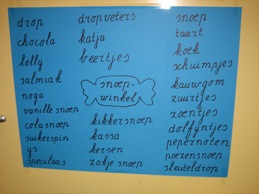 drop
chocola
lolly
salmiak
noga
vanille snoep
cola snoep
suikerspin
ijs
speculaas
dropveters
katja
beertjes
snoep-
winkel
kikkersnoep
kassa
kersen
zakje snoep
snoep
taart
koek
schuimpjes
kauwgom
zuurtjes
zoentjes
dolfijntjes
pepernoten
poezensnoep
sleuteldrop